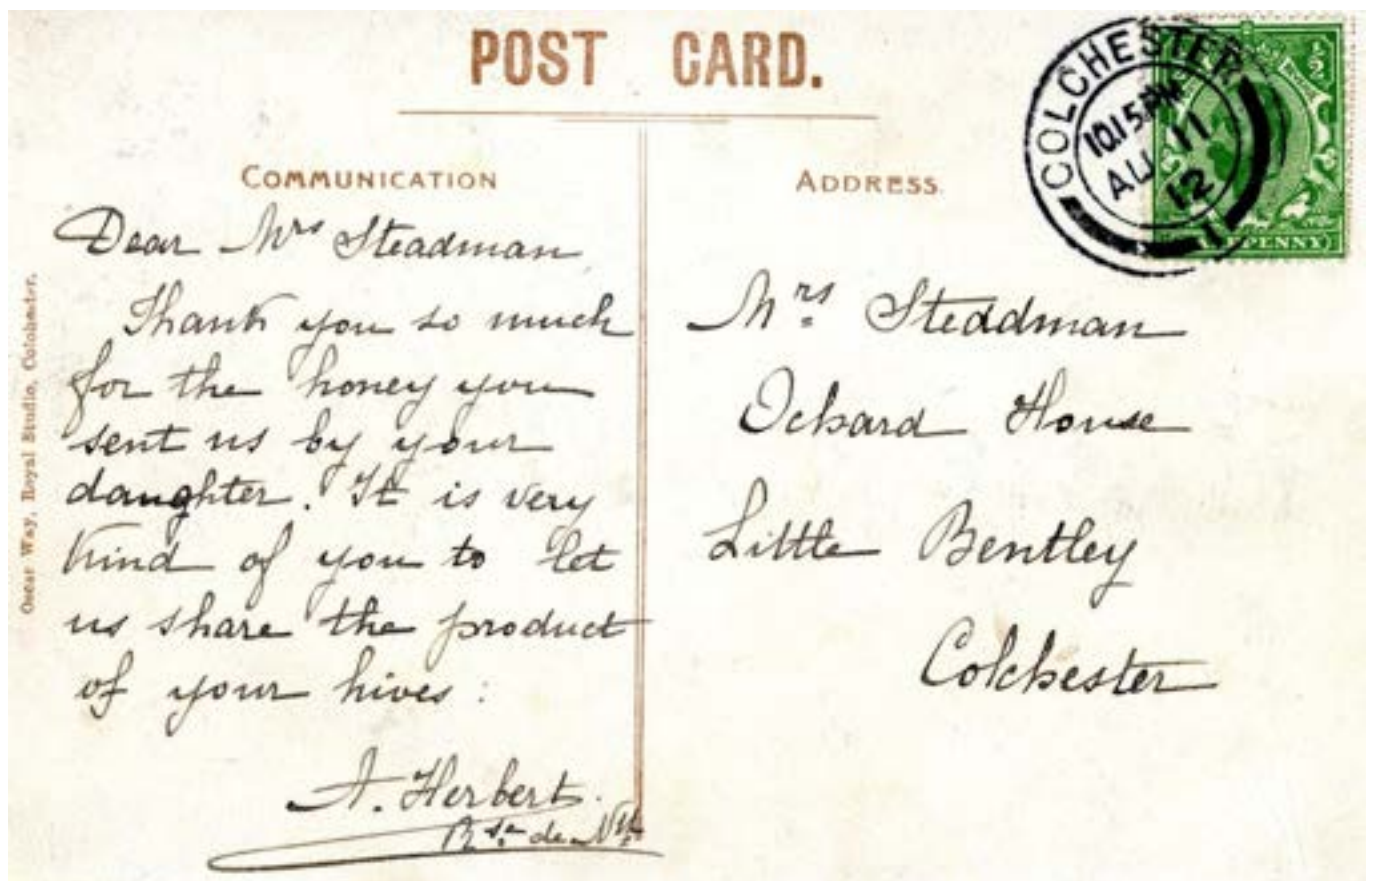 POST CARD.
COMMUNICATION
ADDRESS.
COLCHESTER
10.15 PM
AU 11
12
½
PENNY
Oscar Way, Royal Studio, Colchester.
Dear Mrs Steadman
Thank you so much
for the honey you
sent us by your
daughter. It is very
kind of you to let
us share the product
of your hives:
A. Herbert.
de
Mrs. Steddman
Ochard House
Little Bentley
Colchester